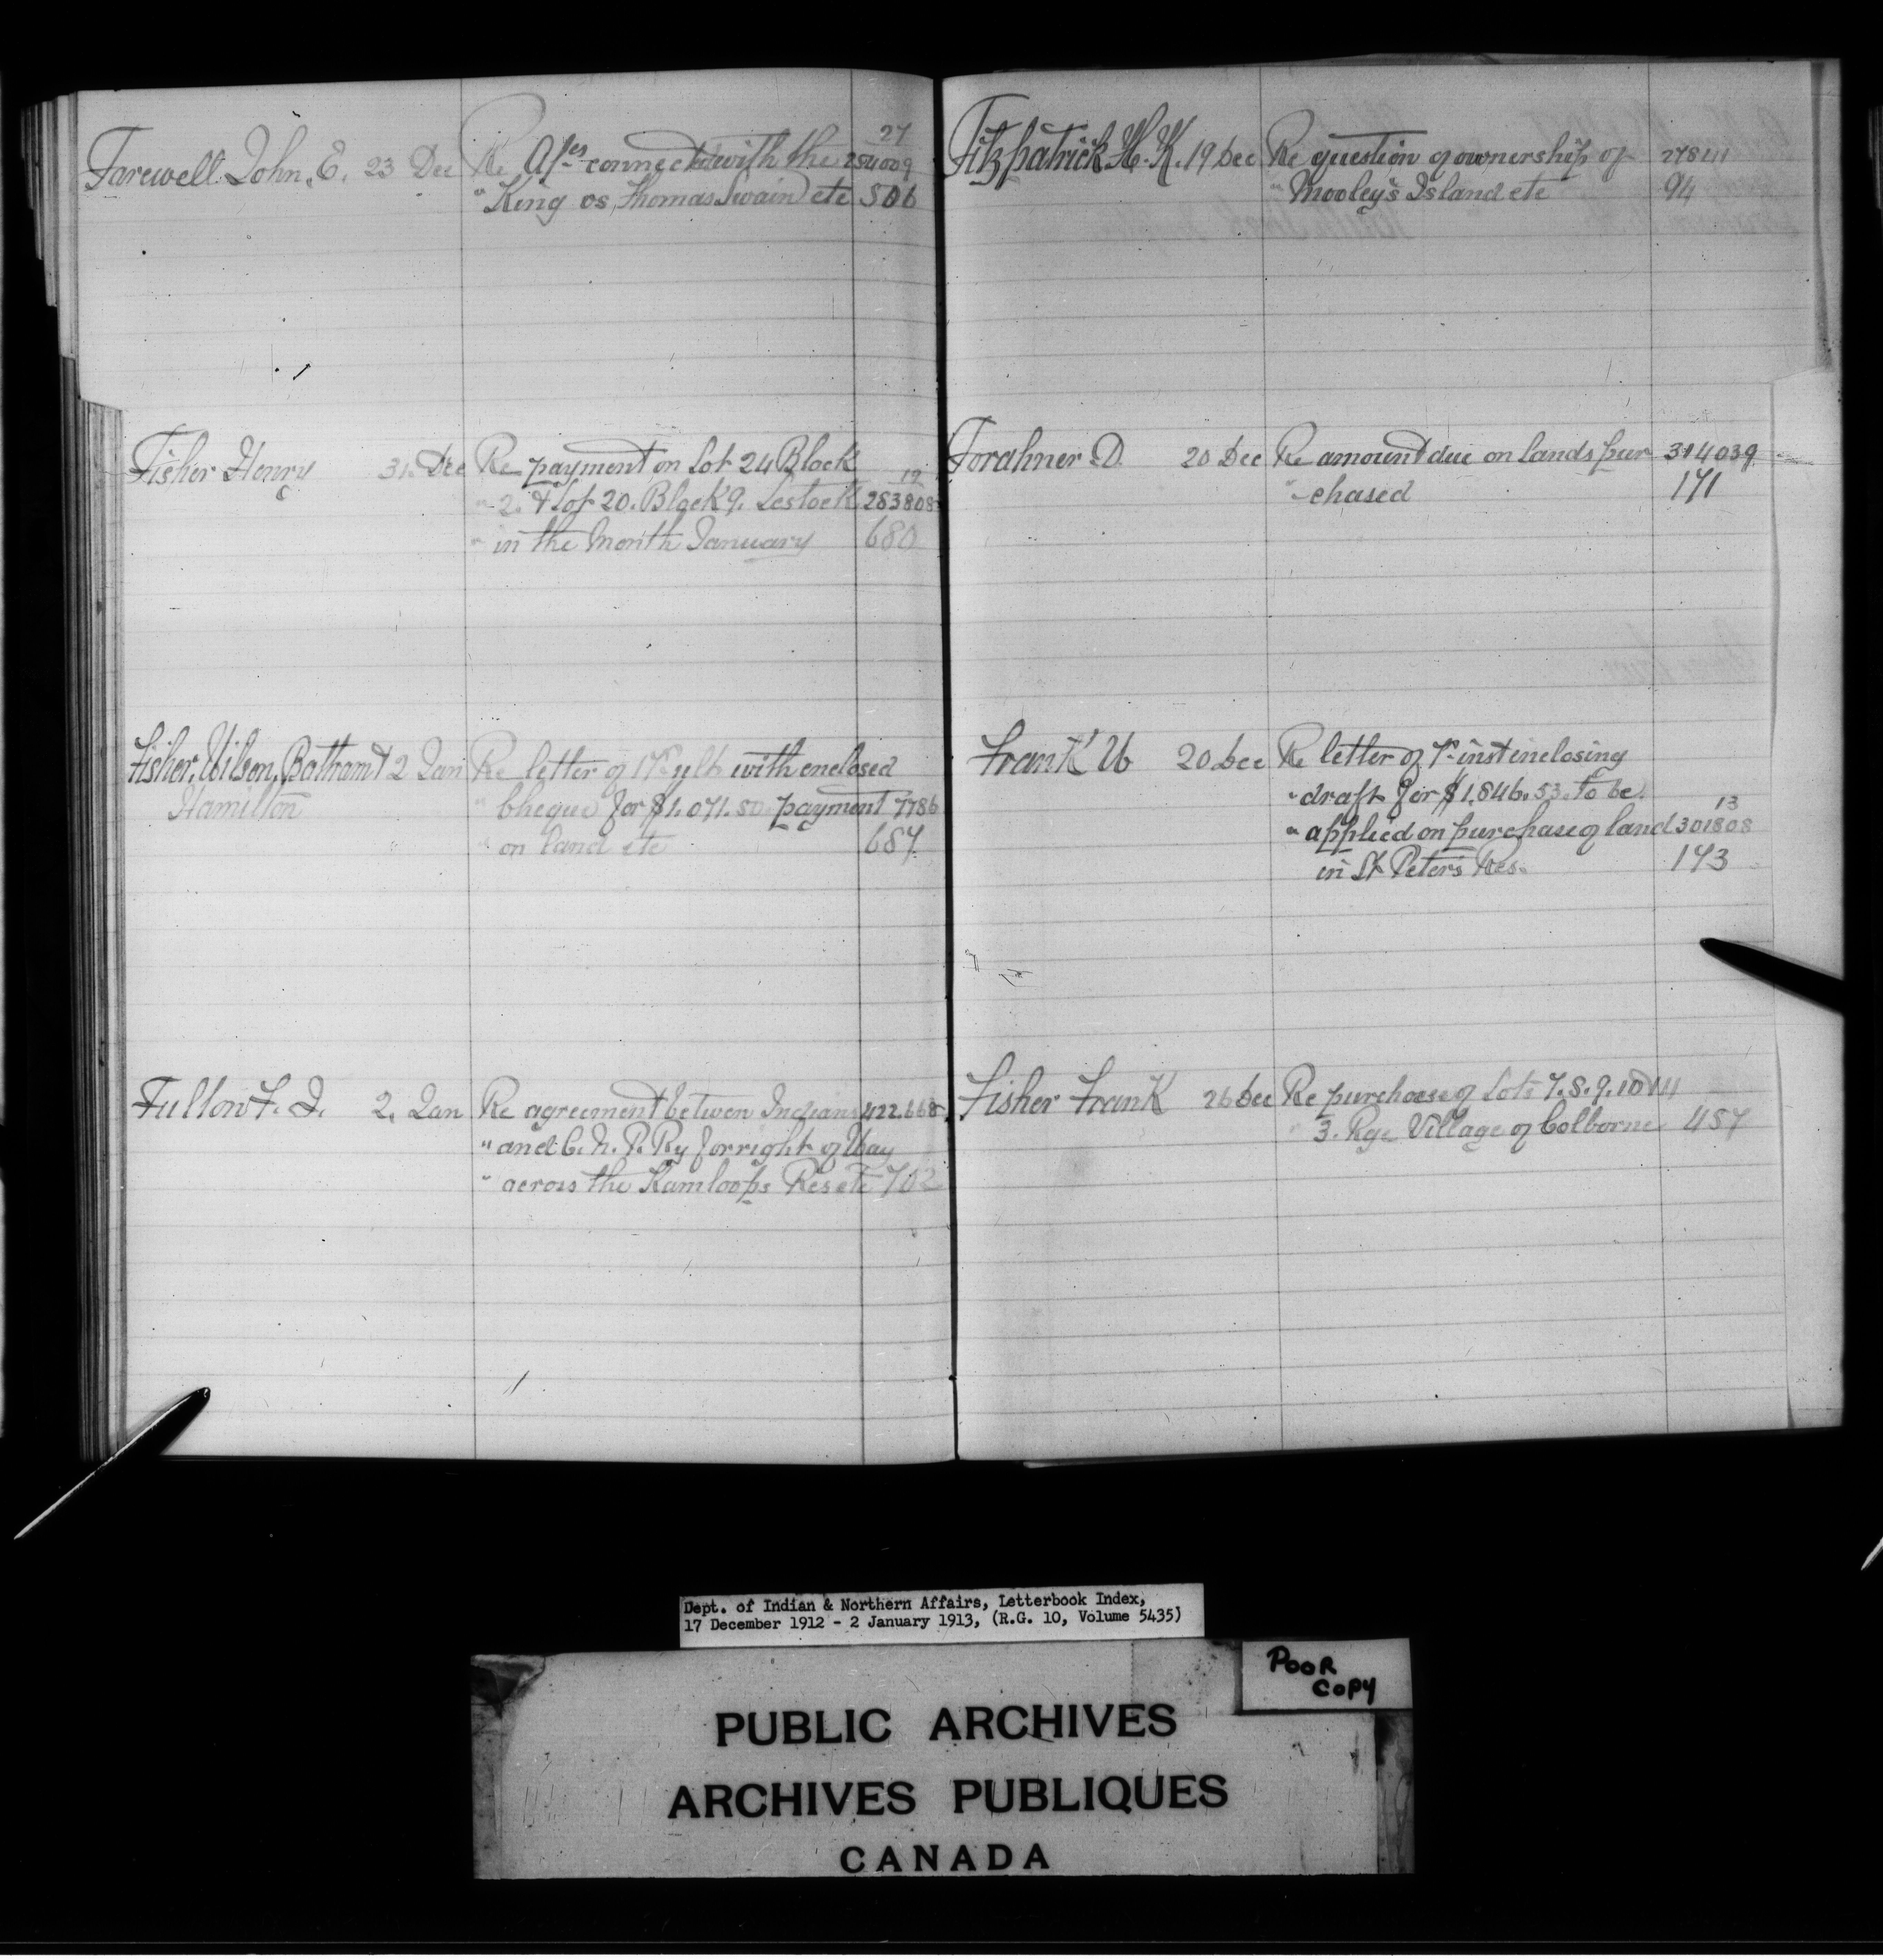 27
Farewell John. E. 23 Dec Re A/cs connected with the 254009
" King vs Thomas Swain etc 506
Fisher Henry 31. Dec Re payment on Lot 24 Block
12
" 2. & Lot 20. Block 9. Lestock 283808
" in the Month January 680
Fisher, Wilson, Batham & 2 Jan Re letter of ult with enclosed
Hamilton " Cheque for $1.071.50 payment 7786
" on land etc 687
Fullow F. J. 2. Jan Re agreement between Indians 422.668
" and C. N. P. Ry for right of Way
" across the Kamloops Res etc 702
Fitzpatrick H. K. 19 Dec Re question of ownership of
" Mooley's Island etc 94
Forahner D. 20 Dec Re amount due on lands pur 314039
" chased 171
Frank W 20 Dec Re letter of inst enclosing
" draft for $1,846.53. to be
13
" applied on purchase of land 301808
in St Peter's Res. 173
Fisher Frank 26 Dec Re purchase of Lots 7. 8. 9. 10
" 3. Rge Village of Colborne 457
Dept. of Indian & Northern Affairs, Letterbook Index,
17 December 1912 - 2 January 1913, (R.G. 10, Volume 5435)
POOR
COPY
PUBLIC ARCHIVES
ARCHIVES PUBLIQUES
CANADA